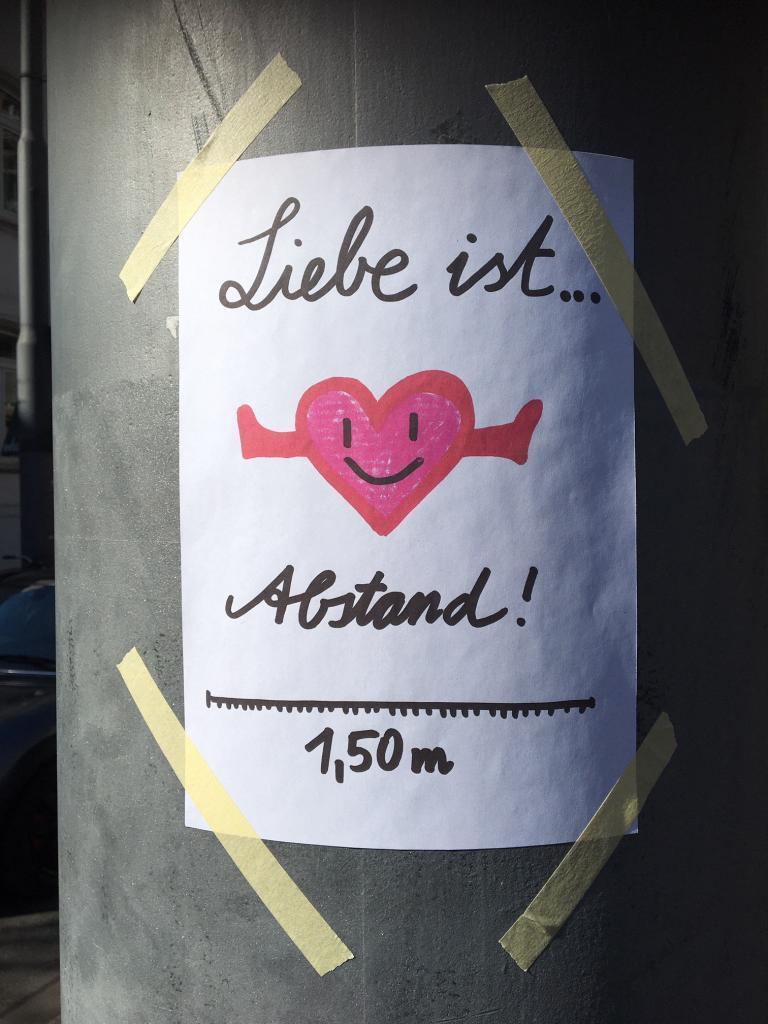 Liebe ist...
Abstand!
1,50 m